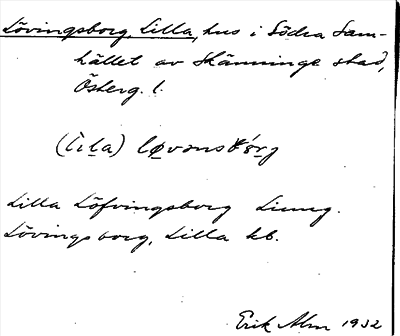 Lövingsborg, Lilla, hus i Södra Sam-
hället av Skänninge stad,
Österg. l.
(lila) løvons
Lilla Löfvingsborg
Lövingsborg, Lilla kb.
Erik Alm 1932